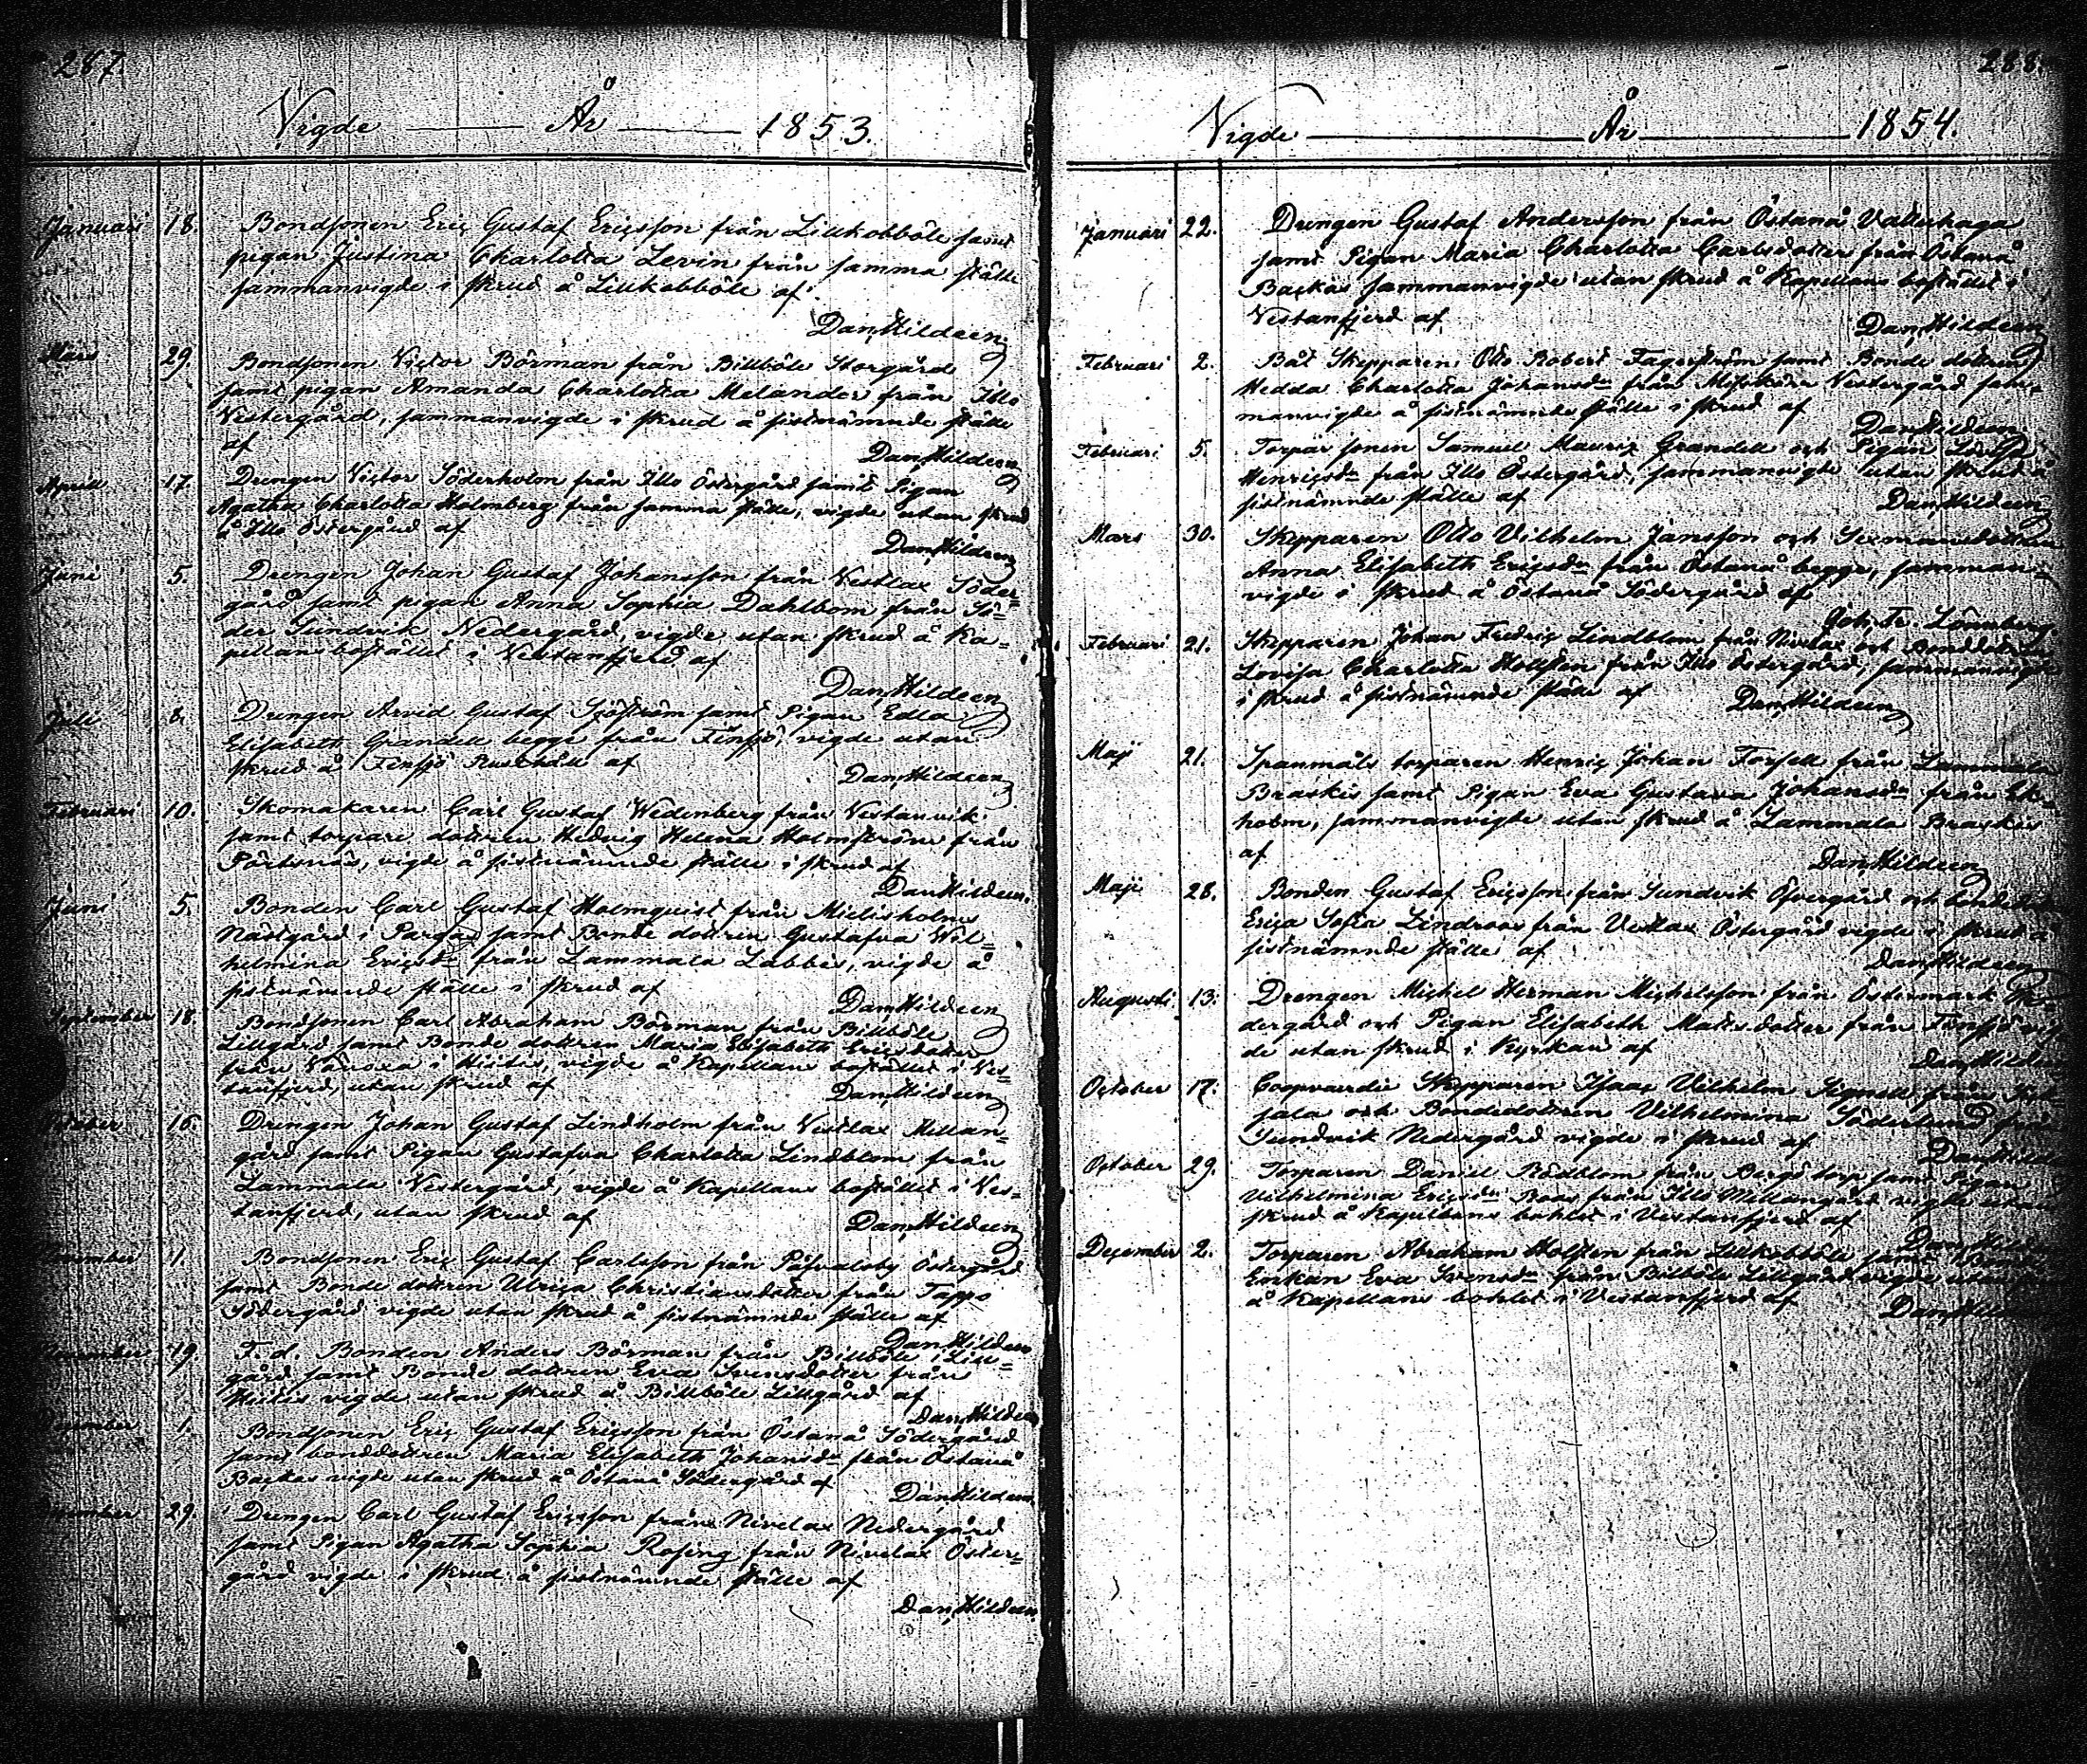 287.
Vigde År 1853.
Januari 18. Bondsonen Eric Gustaf Ericsson från Lillkobböle samt
pigan Justina Charlotta Levin från samma ställe
sammanvigde i skrud å Lillkobböle af
Dan. Hildeen
Mars 29. Bondsonen Victor Börman från Billböle Storgård
samt pigan Amanda Charlotta Melander från Illo
Vestergård, sammanvigde i skrud å sistnämnde ställe
af
Dan. Hildeen
Aprill 17. Drengen Victor Söderholm från Illo Östergård samt Pigan
Agatha Charlotta Holmberg från samma ställe, vigde utan skrud
å Illo Östergård af
Dan. Hildeen
Juni 5. Drengen Johan Gustaf Johansson från Vestlax Söder=
gård samt pigan Anna Sophia Dahlbom från Sö=
der Sundvik Nedergård, vigde utan skrud å Ka=
pellansbostället i Vestanfjerd af
Dan. Hildeen
Juli 8. Drengen Arvid Gustaf Sjöström samt Pigan Edla
Elisabeth Grandell begge från Finsjö, vigde utan
skrud å Finsjö Rusthåll af
Dan. Hildeen
Februari 10. Skomakaren Carl Gustaf Wedenberg från Vestanvik
samt torpare dottren Hedvig Helena Holmström från
Pörtsnäs, vigde å sistnämnde ställe i skrud af
Dan. Hildeen.
Juni 5. Bonden Carl Gustaf Holmquist från Mielisholm
Nästgård i Pargas samt Bonde dottren Gustafva Wil=
helmina Ericsdr från Lammala Labbis, vigde å
sistnämnde ställe i skrud af
Dan. Hildeen
September 18. Bondsonen Carl Abraham Börman från Billböle
Lillgård samt Bonde dottren Maria Elisabeth Ericsdotter
från Vänoxa i Hiitis, vigde å Kapellans bostället i Ves=
tanfjerd, utan skrud af
Dan. Hildeen
October 16. Drengen Johan Gustaf Lindholm från Vestlax Mellan=
gård samt Pigan Gustafva Charlotta Lindblom från
Lammala Vestergård, vigde å Kapellans bostället i Ves=
tanfjerd, utan skrud af
Dan. Hildeen
November 1. Bondsonen Eric Gustaf Carlsson från Påfvalsby Östergård
samt Bonde dottren Ulrica Christiansdotter från Tappo
Södergård vigde utan skrud å sistnämnde ställe af
Dan. Hildeen
November 19. F. d. Bonden Anders Börman från Billböle Lill=
gård samt Bonde dottren Eva Svensdotter från
Hiitis vigde utan skrud å Billböle Lillgård af
Dan. Hildeen
December 1. Bondsonen Eric Gustaf Ericsson från Östanå Södergård
samt bonddottren Maria Elisabeth Johansdr från Östanå
Backas vigde utan skrud å Östanå Södergård af
Dan. Hildeen
December 29. Drengen Carl Gustaf Ericsson från Nivelax Nedergård
samt Pigan Agatha Sophia Rosing från Nivelax Öster=
gård vigde i skrud å sistnämnde ställe af
Dan. Hildeen
288.
Vigde År 1854.
Januari 22. Drengen Gustaf Andersson från Östanå Vattuhaga
samt Pigan Maria Charlotta Carlsdotter från Östanå
Backas sammanvigde utan skrud å Kapellans bostället i
Vestanfjerd af
Dan. Hildeen
Februari 2. Båt Skepparen Otto Robert Fagerström samt Bonde dottren
Hedda Charlotta Johansdr från Vestergård sam=
manvigde å sistnämnde ställe i skrud af
Dan. Hildeen
Februari 5. Torpar sonen Samuel Mauriz Grandell och Pigan Lovisa
Henricsdr från Illo Östergård, sammanvigde utan skrud å
sistnämnde ställe af
Dan. Hildeen
Mars 30. Skepparen Otto Vilhelm Jansson och
Anna Elisabeth Ericsdr från Östanå begge, samman=
vigde i skrud å Östanå Södergård af
Joh. Fr. Lönnberg.
Februari 21. Skepparen Johan Fredric Lindblom från Nivelax och Bonddottren
Lovisa Charlotta Hollsten från Illo Östergård, sammanvigde
i skrud å sistnämnde ställe af
Dan. Hildeen
Maji 21. Spanmåls torparen Henric Johan Forsell från Lammala
Braskis samt Pigan Eva Gustava Johansdr från Ek=
holm, sammanvigde utan skrud å Lammala Braskis
af
Dan. Hildeen
Maji 28. Bonden Gustaf Ericsson från Sundvik Öfvergård och
Erica Sofia Lindroos från Vestlax Östergård vigde i skrud å
sistnämnde ställe af
Dan. Hildeen
Augusti 13. Drengen Michel Herman Michelsson från Östermark
dergård och Pigan Elisabeth Matts dotter från Finsjö vig
de utan skrud i Kyrkan af
Dan. Hildeen
October 17. Coopvardie Skepparen Isaac Vilhelm Signell från
sala och Bondedottren Vilhelmina Söderlund från
Sundvik Nedergård vigde i skrud af
Dan. Hildeen
October 29. Torparen Daniel Rödblom från Bergö torp samt Pigan
Vilhelmina Ericsdr Roos från Illo Mellangård vigde utan
skrud å Kapellans bohlet i Vestanfjerd af
Dan. Hildeen
December 2. Torparen Abraham Holsten från Lillkobböle samt
Enkan Eva Svensdr från Billböle Lillgård vigde utan
å Kapellans bohlet i Vestanfjerd af
Dan. Hildeen